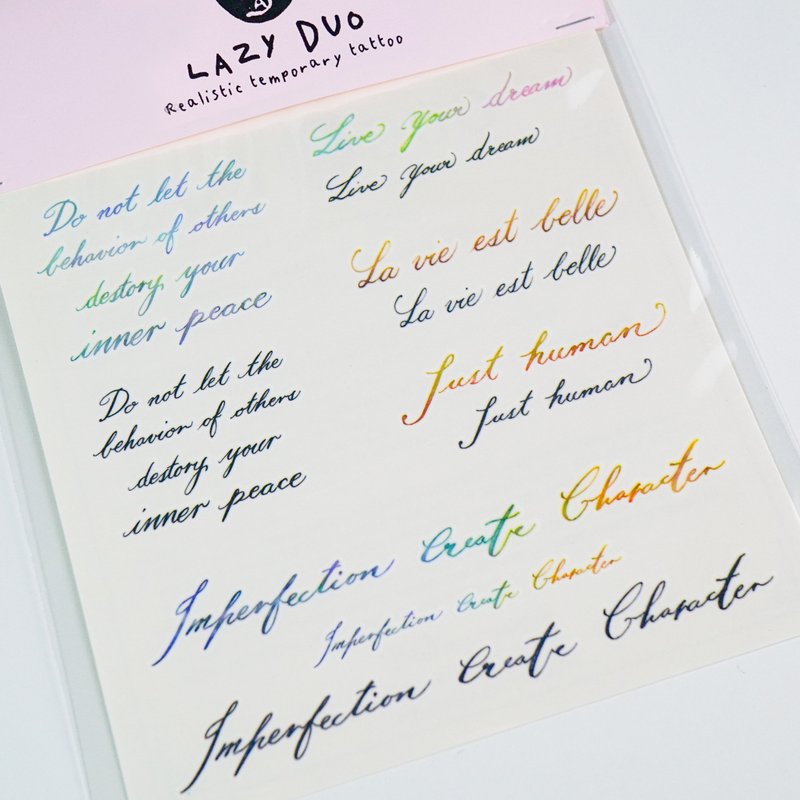 LAZY DUO
Realistic temporary tattoo
Do not let the
behavior of others
destory your
inner peace
Do not let the
behavior of others
destory your
inner peace
Live your dream
Live your dream
La vie est belle
La vie est belle
Just human
Just human
Imperfection Create Character
Imperfection Create Character
Imperfection Create Character